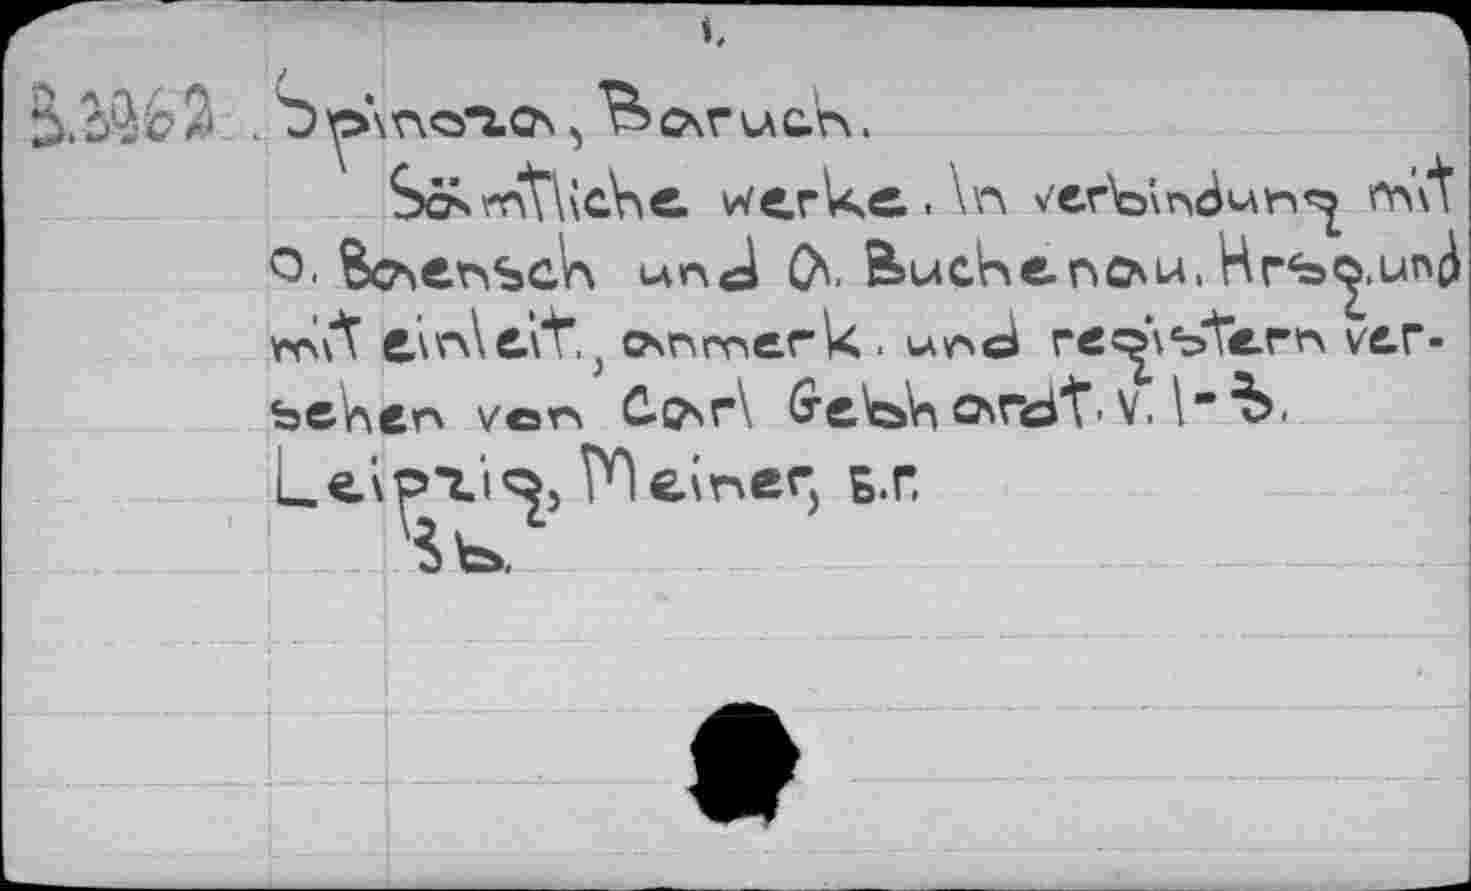 1.
Spinoza, Baruch.
Sämtliche werke. In verbindung mit
O. Baensch und A. Buchenau. Hrsg. und
mit einleit., anmerk. und registern ver-
sehen von Carl Gebhardt. V. 1-3.
Leipzig, Meiner, Б.г.
3 b.